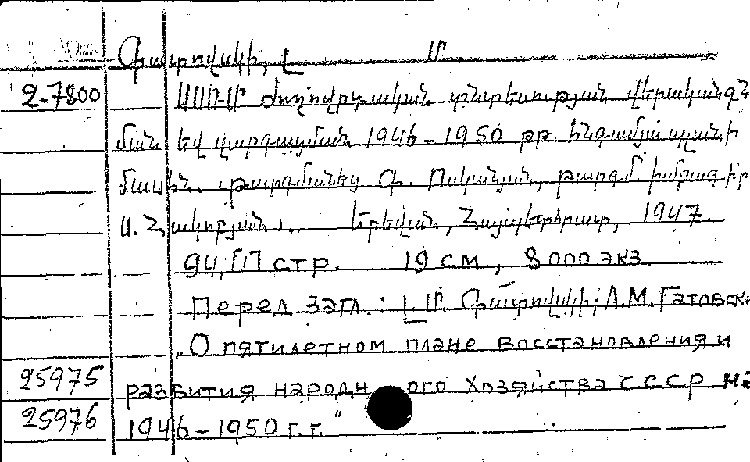 Գատովսկի, Լ. Մ.
2-7800 ՍՍՌՄ ժողովրդական տնտեսության վերականգն
ման եվ զարգացման 1946-1950 թթ. հնգամյա պլանի
մասին. թարգմանեց Գ. Ոսկանյան, թարգմ. խմբագիր
Ա. Հակոբյան.. Երեվան, Հայպետհրատ, 1947
94, III стр. 19 см, 8000 экз.
Перед загл.: Լ.Մ. Գատովսկի; Л.М. Гатовски
"О пятилетном плане восстановления и
25975 развития народного хозяйства СССР на
25976 1946-1950 г.г."